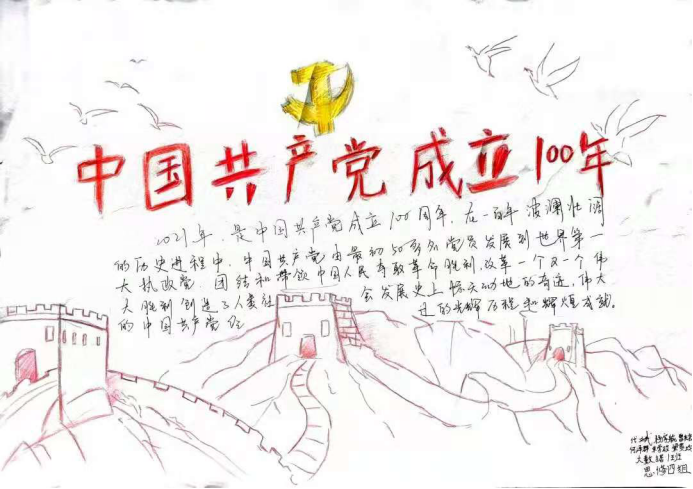 中国共产党成立100年
2021年，是中国共产党成立100周年，在一百年波澜壮阔
的历史进程中，中国共产党由最初50多名党员发展到世界第一
大执政党，团结和带领中国人民夺取革命胜利，改革一个又一个伟
大胜利，创造了人类社会发展史上惊天动地的奇迹，伟大
的中国共产党经过的光辉历程和辉煌成就。
思修四组